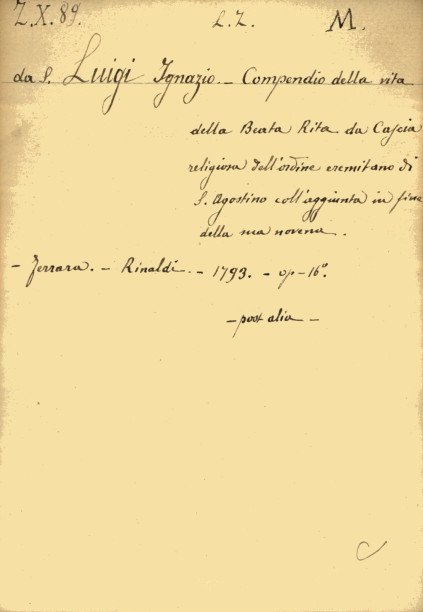 Z.X.89. L.Z. M.
da S. Luigi Ignazio. - Compendio della vita
della Beata Rita da Cascia
religiosa dell'ordine eremitano di
S. Agostino coll'aggiunta in fine
della sua novena.
- Ferrara. - Rinaldi. - 1793. - op - 16º.
- post alia -